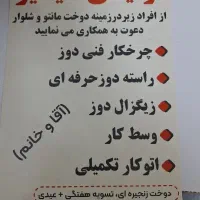 از افراد زیر در زمینه دوخت مانتو و شلوار
دعوت به همکاری می نمایید
چرخکار فنی دوز
راسته دوز حرفه ای
زیگزال دوز
وسط کار
اتوکار تکمیلی
(آقا و خانم)
دوخت زنجیره ای، تسویه هفتگی + عیدی